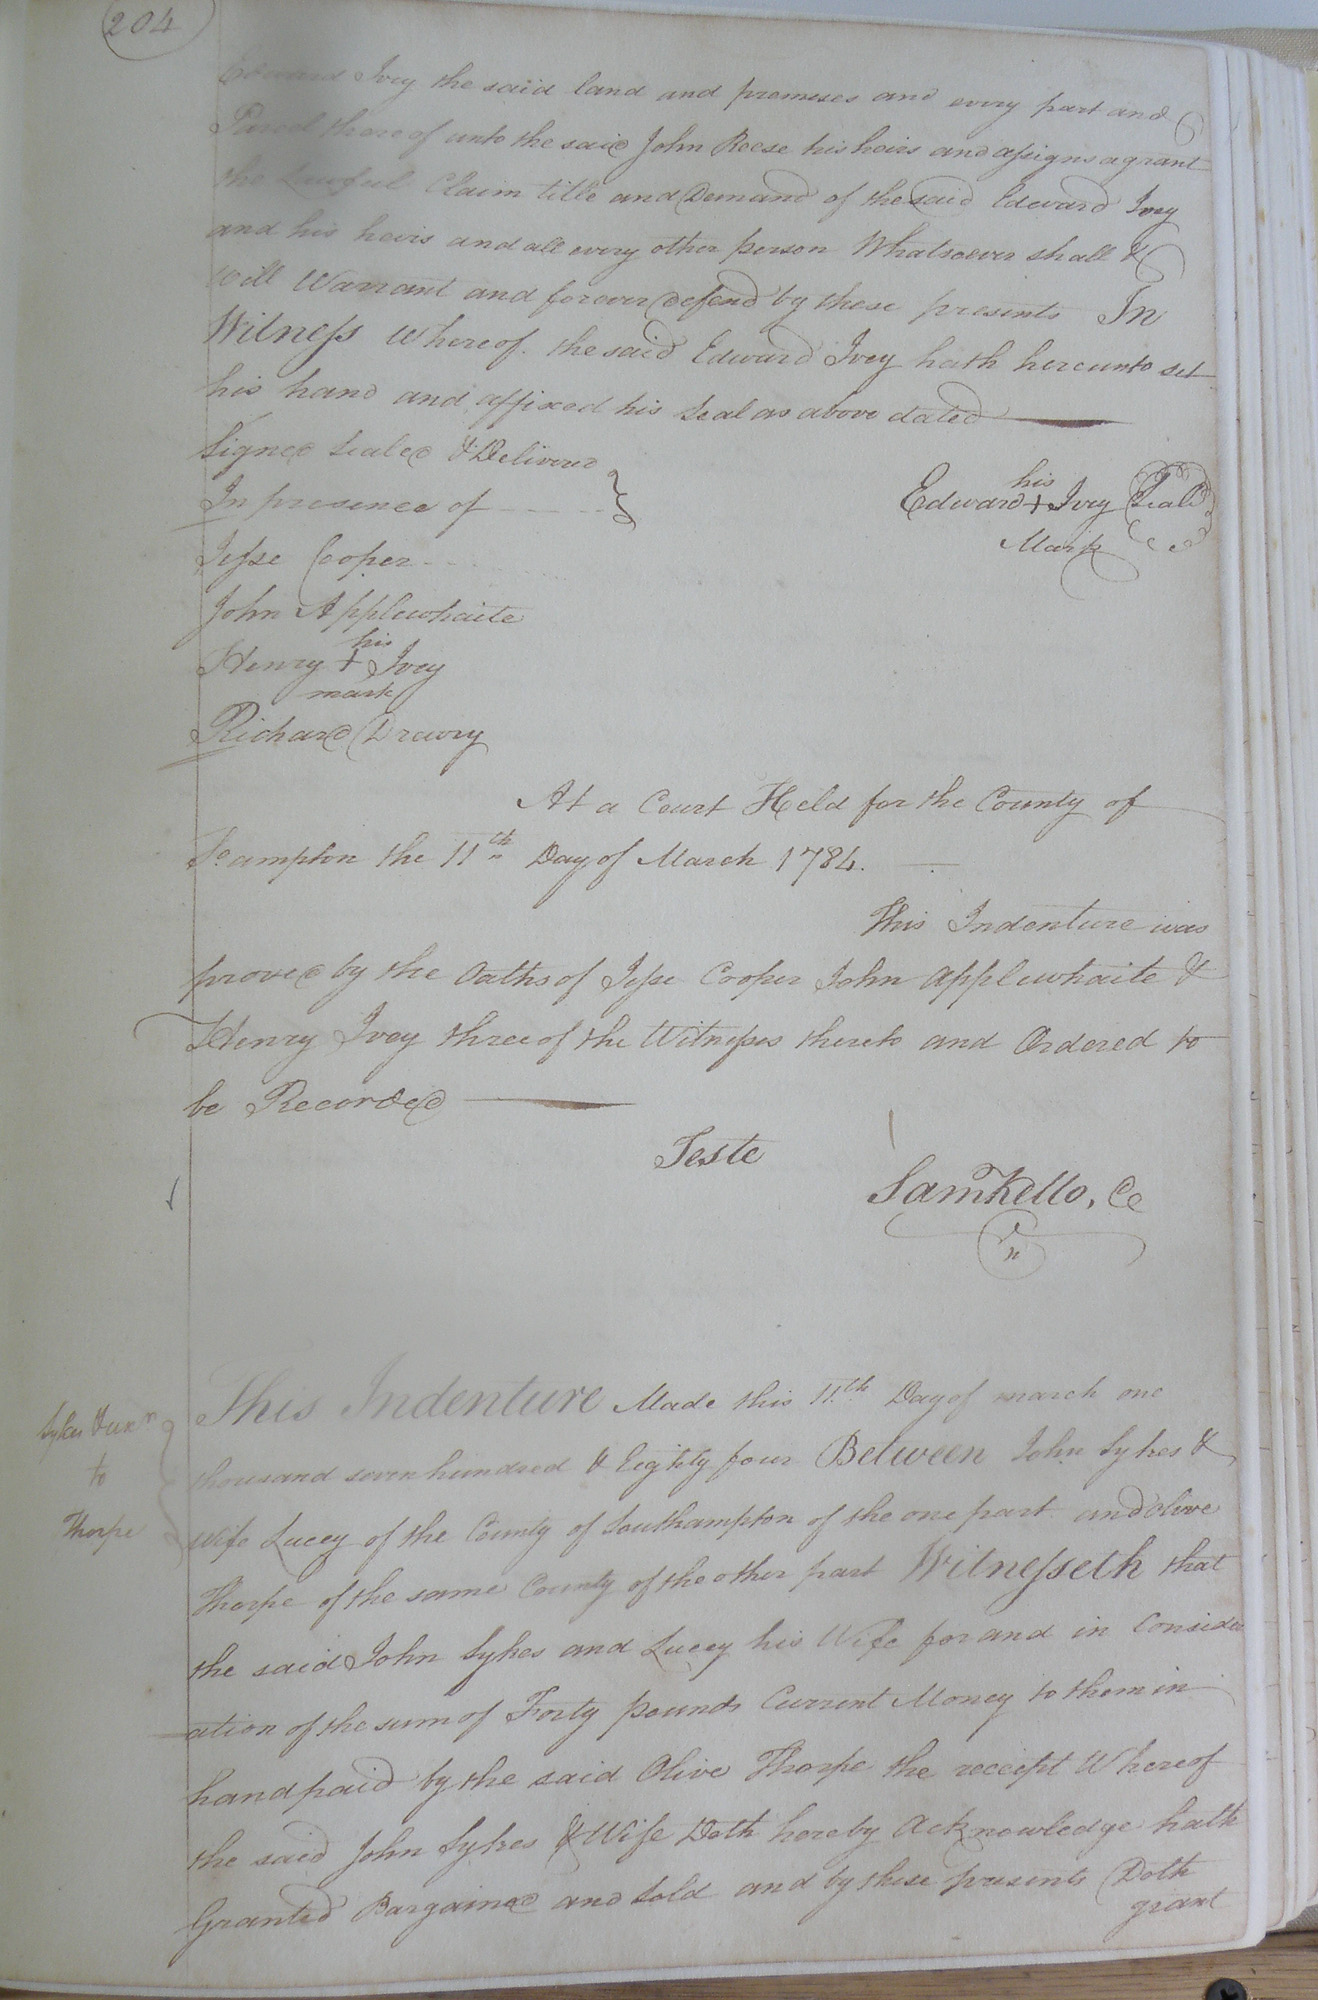 204
Edward Ivey the said land and premeses and every part and
Parcel thereof unto the said John Reese his heirs and assigns agrant
the Lawful Claim title and Demand of the said Edward Ivey
and his heirs and all every other person Whatsoever shall &
Will Warrant and forever defend by these presents In
Witness Whereof. the said Edward Ivey hath hereunto set
his hand and affixed his Seal as above dated
Signed Sealed & Deliverd
In presence of
his
Edward + Ivey Seal
Mark
Jesse Cooper
John Applewhaite
his
Henry + Ivey
mark
Richard Drewry
At a Court Held for the County of
So.ampton the 11th Day of March 1784.
This Indenture was
proved by the Oaths of Jesse Cooper John Applewhaite &
Henry Ivey three of the Witnesses thereto and Ordered to
be Recorded
Teste
Saml Kello, Cc
This Indenture Made this 11th Day of march one
Sykes & uxr
to
Thorpe
thousand seven hundred & Eighty four Between John Sykes &
Wife Lucey of the County of Southampton of the one part and Olive
Thorpe of the same County of the other part Witnesseth that
the said John Sykes and Lucey his Wife for and in Consider
ation of the sum of Forty pounds Current Money to them in
hand paid by the said Olive Thorpe the receipt Whereof
the said John Sykes & Wife Doth hereby Acknowledge hath
Granted Bargained and Sold and by these presents Doth
grant